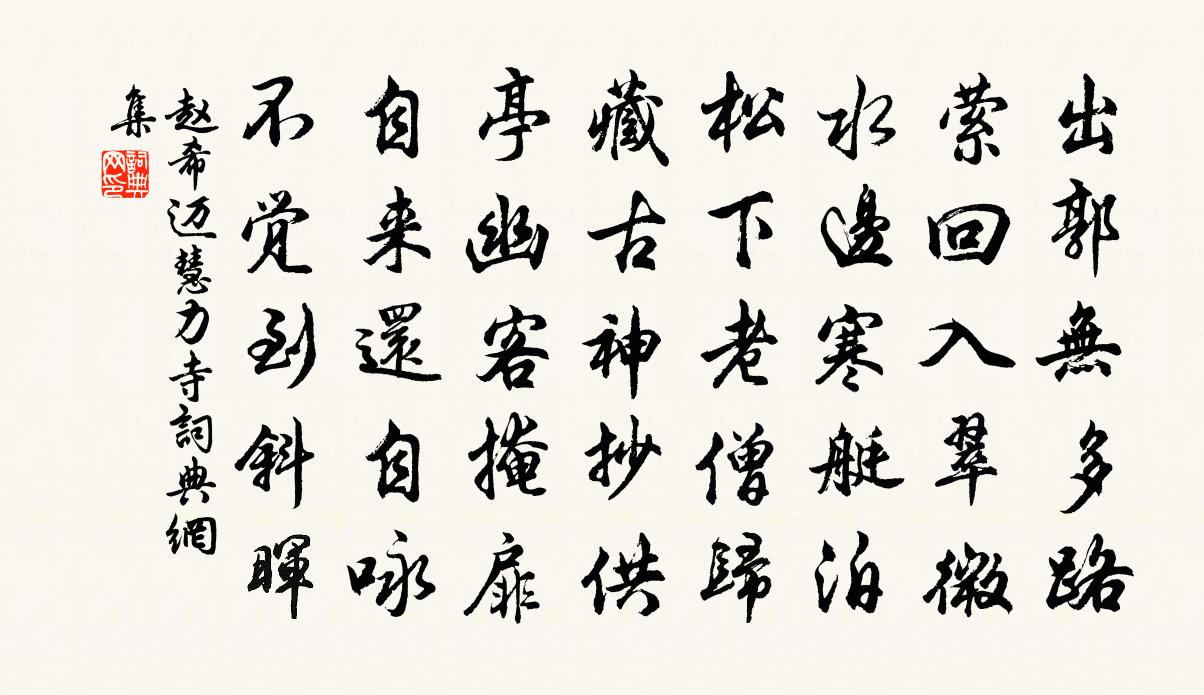 出郭無多路
萦回入翠微
水邊寒艇泊
松下老僧歸
藏古神抄供
亭幽客掩扉
自来還自咏
不覚到斜暉
赵希迈慧力寺詞典網
集
詞典
网印